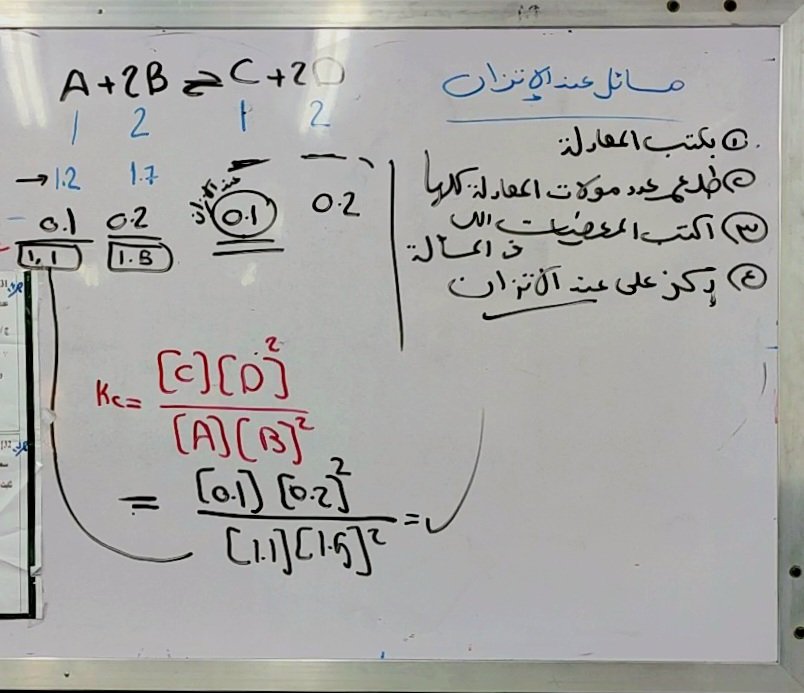 مسائل عند الإتزان
① بكتب المعادلة
② طلع عدد مولات المعادلة كلها
③ اكتب المعطيات اللى
فى المسألة
④ ركز على عند الاتزان
A + 2B ⇌ C + 2D
1 2 1 2
→ 1.2 1.7 — —
0.1 0.2 0.1 0.2
عند الاتزان
1.1 1.5
Kc = [C][D]² / [A][B]²
= [0.1][0.2]² / [1.1][1.5]² =